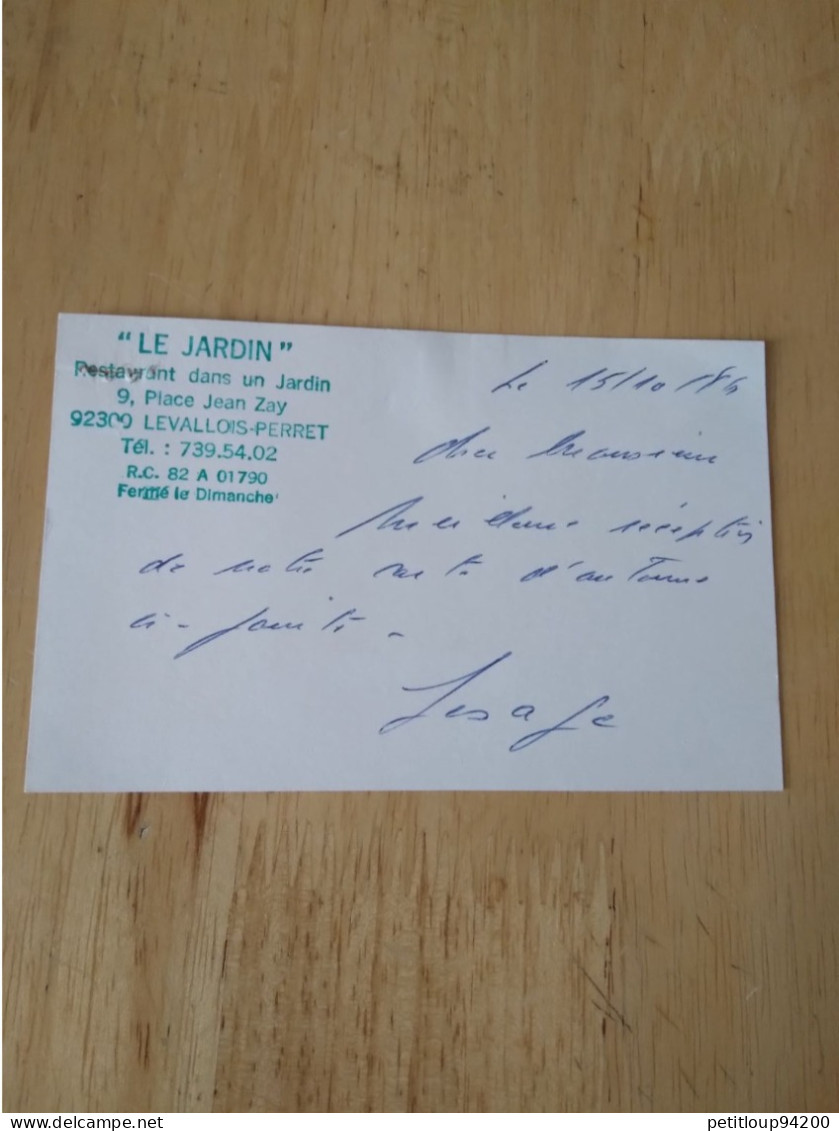 "LE JARDIN"
Restaurant dans un Jardin
9, Place Jean Zay
92300 LEVALLOIS-PERRET
Tél. : 739.54.02
R.C. 82 A 01790
Fermé le Dimanche
Le 15/10/84
Cher Monsieur
réception
de notre carte d'automne
ci-jointe -
Lesage
petitloup94200